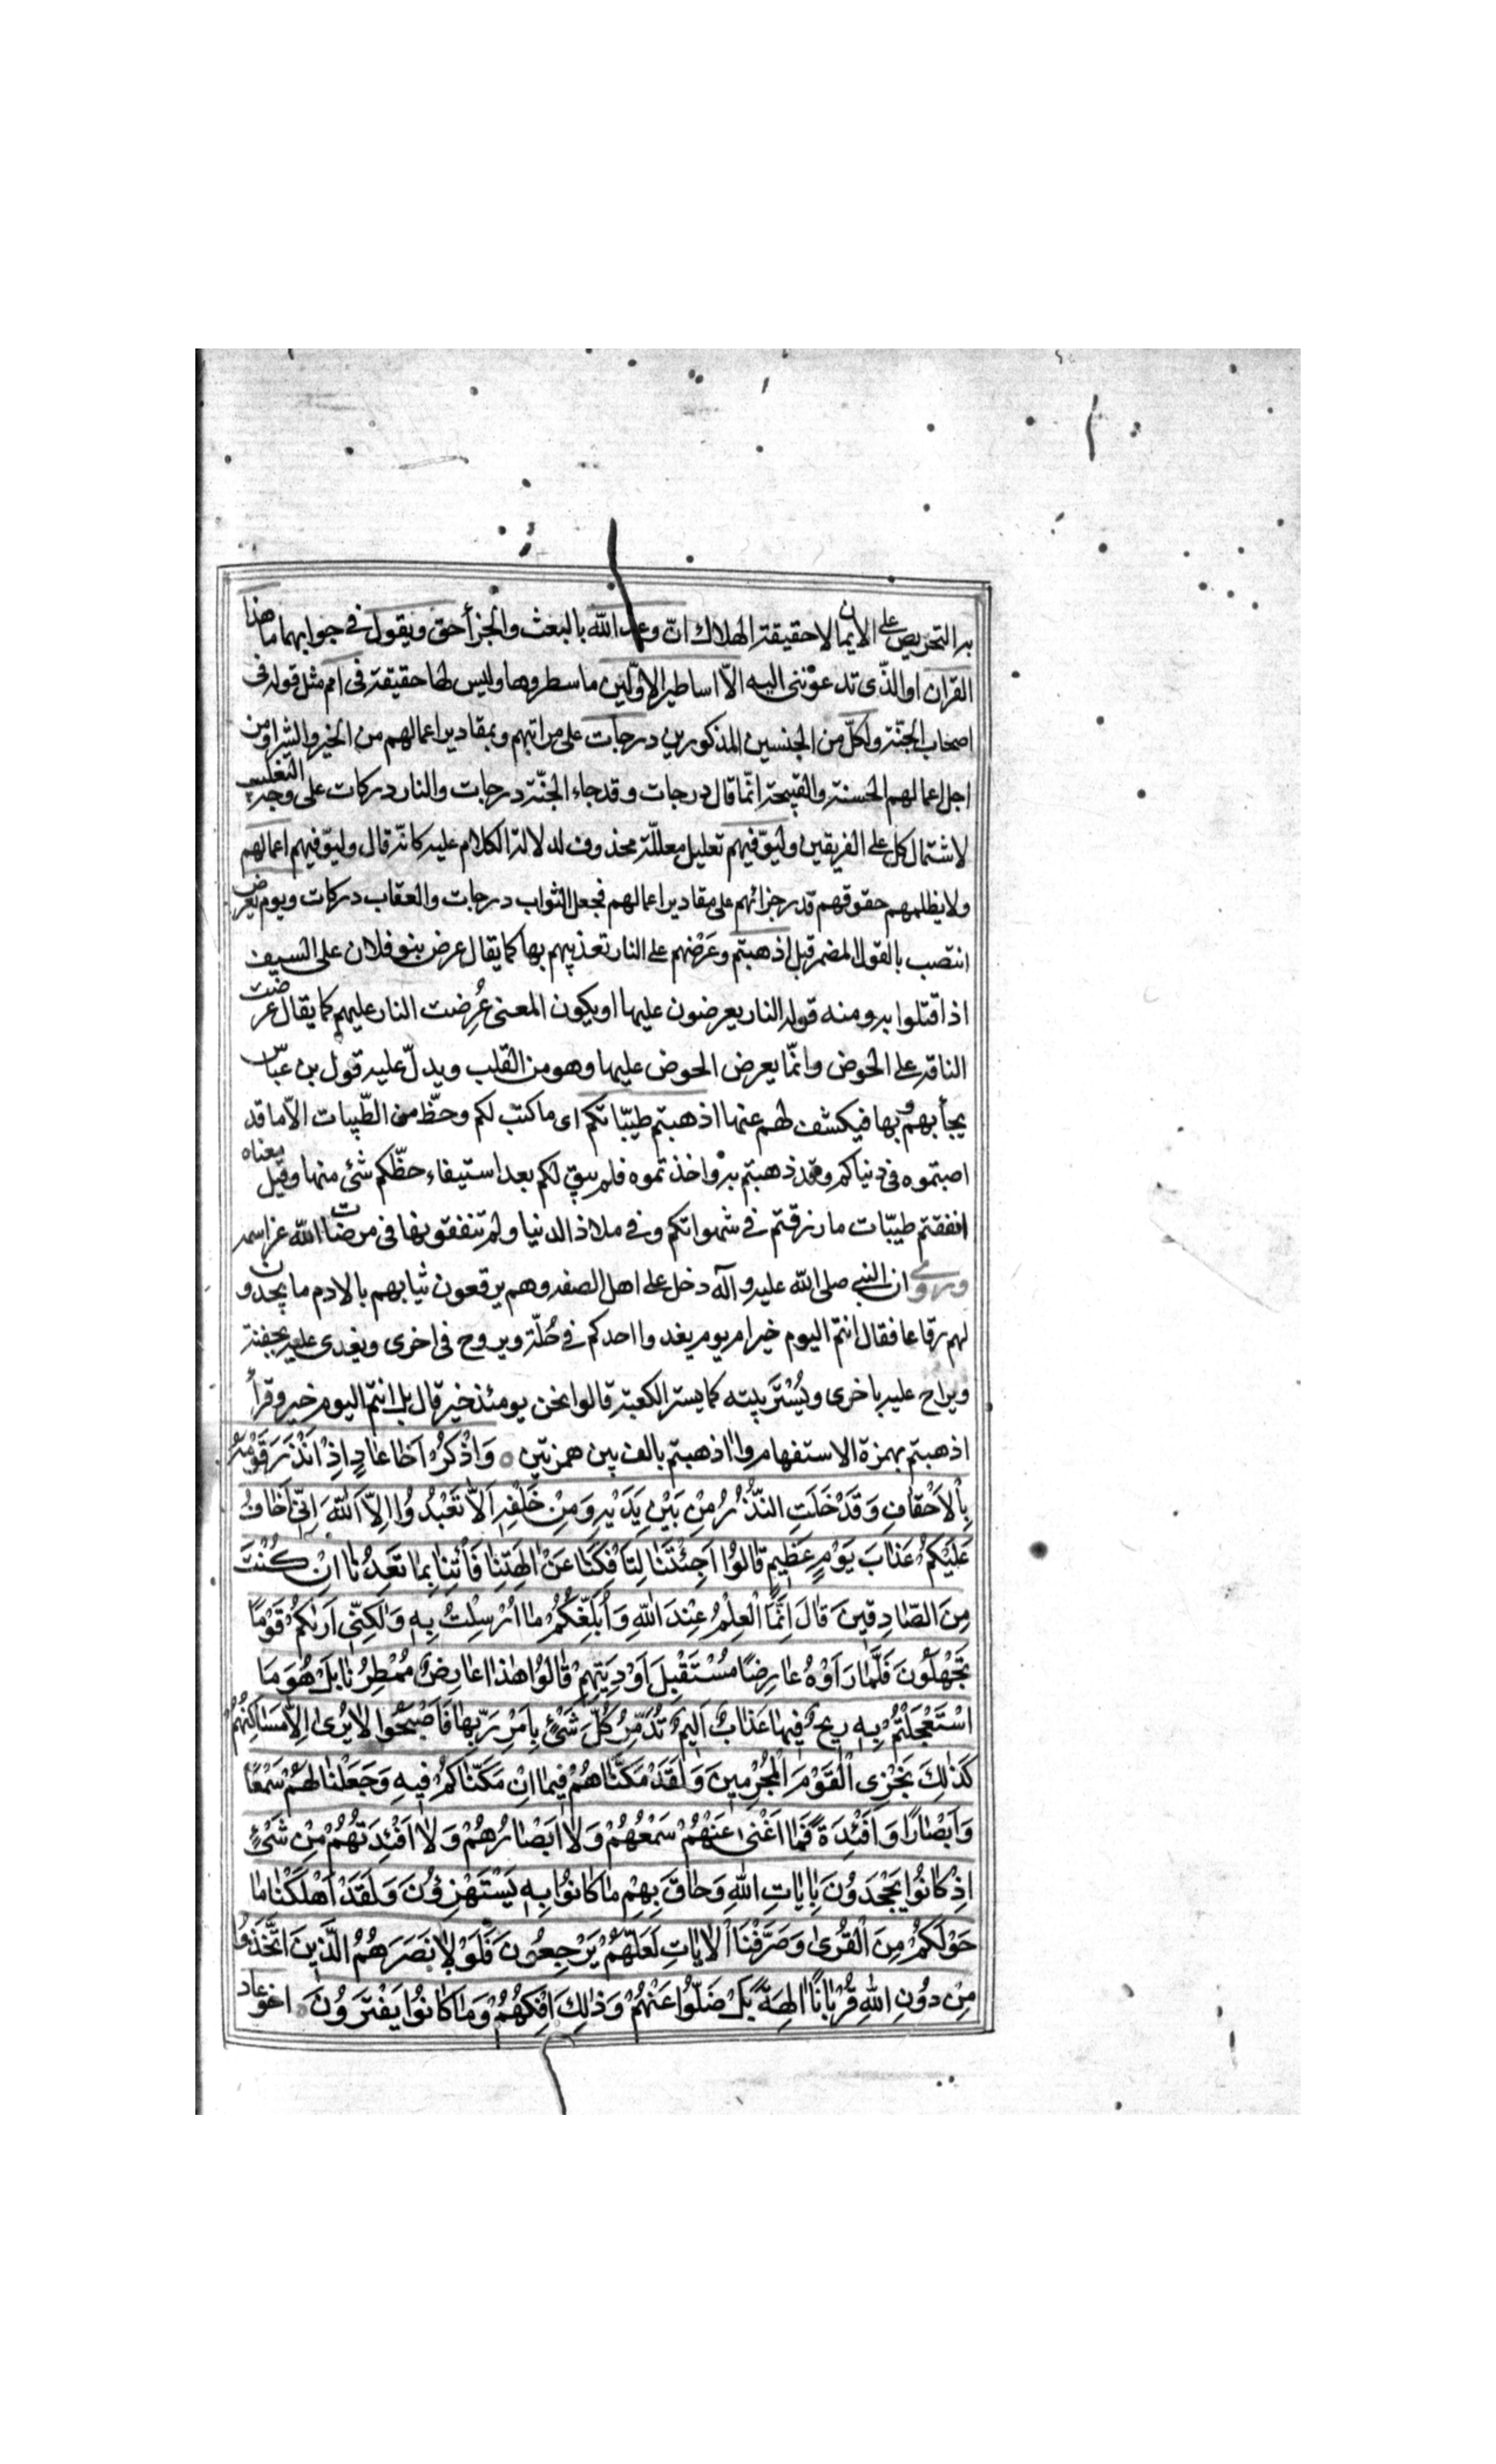 به التحريص على الايمان لا حقيقة الهلاك انّ وعد الله بالبعث والجزأ حق ويقول في جوابهما ما هذا
القران او الذّى تدعوننى اليه الّا اساطير الاوّلين ما سطروها وليس لها حقيقة فى امم مثل قوله فى
اصحاب الجنّة ولكلّ من الجنسين المذكورين درجات على مراتبهم وبمقادير اعمالهم من الخير والشر او من
اجل اعمالهم الحسنة والقبيحة انّما قال درجات وقد جاء الجنّة درجات والنار دركات على وجه التغليب
لاشتمال كل على الفريقين وليوّفيهم تعليل معلّله محذوف لدلالة الكلام عليه كانّه قال وليوّفيهم اعمالهم
ولا يظلمهم حقوقهم قدر جزائهم على مقادير اعمالهم فجعل الثواب درجات والعقاب دركات ويوم يعرض
انتصب بالقول المضمر قبل اذهبتم وعَرْضهم على النار تعذيبهم بها كما يقال عرض بنو فلان على السيف
اذا قتلوا به ومنه قوله النار يعرضون عليها او يكون المعنى عُرِضت النار عليهم كما يقال عرضت
الناقه على الحوض وانّما يعرض الحوض عليها وهو من القلب ويدلّ عليه قول بن عبّاس
يجأ بهم بها فيكشف لهم عنها اذهبتم طيبّاتكم اى ما كتب لكم وحظّ من الطّيبات الّا ما قد
اصبتموه فى دنياكم وقد ذهبتم به واخذتموه فلم يبق لكم بعد استيفاء حظّكم شئ منها وقيل معناه
انفقتم طيبّات ما رزقتم في شهواتكم وفي ملاذ الدنيا ولم تنفقوها فى مرضات الله عز اسمه
وروي ان النبي صلى الله عليه وآله دخل على اهل الصفه وهم يرقعون ثيابهم بالادم ما يجدون
لهم رقاعا فقال انتم اليوم خير ام يوم يغدوا احدكم في حُلّة ويروح فى اخرى ويغدى عليه بجفنة
ويراح عليه باخرى ويُسْتَر بيته كما يستر الكعبة قالوا نحن يومئذ خير قال بل انتم اليوم خير وقرأ
اذهبتم بهمزة الاستفهام واَاذهبتم بالف بين همزتين ○ وَاذْكُرْ اَخٰا عٰادٍ اِذْ اَنْذَرَ قَوْمَهُ
بِالْاَحْقٰافِ وَقَدْ خَلَتِ النُّذُرُ مِنْ بَيْنِ يَدَيْهِ وَمِنْ خَلْفِهِ اَلّٰا تَعْبُدُوا اِلَّا اللّٰهَ اِنّى اَخٰافُ
عَلَيْكُمْ عَذٰابَ يَوْمٍ عَظيمٍ قٰالُوا اَجِئْتَنٰا لِتَأْفِكَنٰا عَنْ اٰلِهَتِنٰا فَأْتِنٰا بِمٰا تَعِدُنٰا اِنْ كُنْتَ
مِنَ الصّٰادِقينَ قٰالَ اِنَّمَا الْعِلْمُ عِنْدَ اللّٰهِ وَاُبَلِّغُكُمْ مٰا اُرْسِلْتُ بِهٖ وَلٰكِنّى اَرٰيكُمْ قَوْمًا
تَجْهَلُونَ فَلَمّٰا رَاَوْهُ عٰارِضًا مُسْتَقْبِلَ اَوْدِيَتِهِمْ قٰالُوا هٰذٰا عٰارِضٌ مُمْطِرُنٰا بَلْ هُوَ مَا
اسْتَعْجَلْتُمْ بِهٖ ريحٌ فيهٰا عَذٰابٌ اَليمٌ تُدَمِّرُ كُلَّ شَىْءٍ بِاَمْرِ رَبِّهٰا فَاَصْبَحُوا لٰا يُرٰى اِلّٰا مَسٰاكِنُهُمْ
كَذٰلِكَ نَجْزِى الْقَوْمَ الْمُجْرِمينَ وَلَقَدْ مَكَّنّٰاهُمْ فيمٰا اِنْ مَكَّنّٰاكُمْ فيهِ وَجَعَلْنٰا لَهُمْ سَمْعًا
وَاَبْصٰارًا وَاَفْئِدَةً فَمٰا اَغْنٰى عَنْهُمْ سَمْعُهُمْ وَلٰا اَبْصٰارُهُمْ وَلٰا اَفْئِدَتُهُمْ مِنْ شَىْءٍ
اِذْ كٰانُوا يَجْحَدُونَ بِاٰيٰاتِ اللّٰهِ وَحٰاقَ بِهِمْ مٰا كٰانُوا بِهٖ يَسْتَهْزِؤُنَ وَلَقَدْ اَهْلَكْنٰا مٰا
حَوْلَكُمْ مِنَ الْقُرٰى وَصَرَّفْنَا الْاٰيٰاتِ لَعَلَّهُمْ يَرْجِعُونَ فَلَوْلٰا نَصَرَهُمُ الَّذينَ اتَّخَذُوا
مِنْ دُونِ اللّٰهِ قُرْبٰانًا اٰلِهَةً بَلْ ضَلُّوا عَنْهُمْ وَذٰلِكَ اِفْكُهُمْ وَمٰا كٰانُوا يَفْتَرُونَ ○ اخو عاد